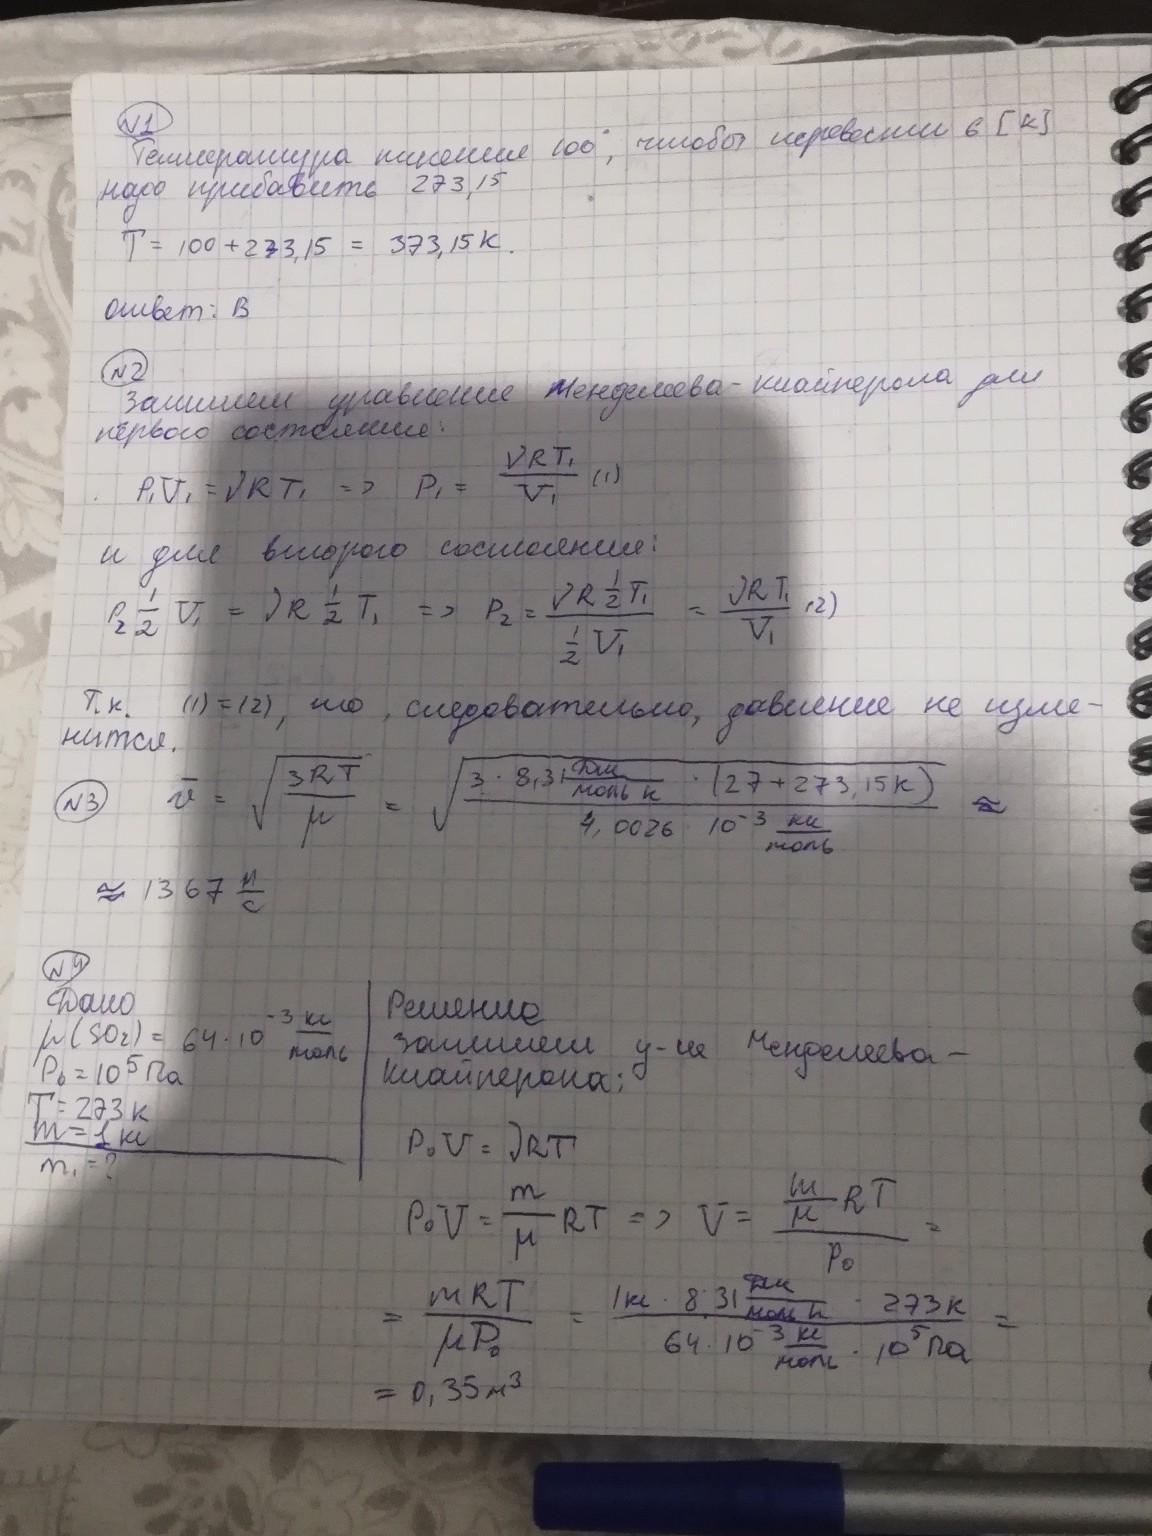 №1
Температура кипения 100°, чтобы перевести в [К]
надо прибавить 273,15
T = 100 + 273,15 = 373,15 К.
Ответ: В
№2
Запишем уравнение Менделеева-Клайперона для
первого состояния:
P₁V₁ = νRT₁ => P₁ = νRT₁/V₁ (1)
и для второго состояния:
P₂ 1/2 V₁ = νR 1/2 T₁ => P₂ = (νR 1/2 T₁)/(1/2 V₁) = νRT₁/V₁ (2)
Т.к. (1) = (2), то, следовательно, давление не изме-
нится.
№3 v̄ = √(3RT/μ) = √(3 · 8,31 Дж/моль К · (27 + 273,15 К)/4,0026 · 10⁻³ кг/моль) ≈
≈ 1367 м/с
№4
Дано
μ(SO₂) = 64 · 10⁻³ кг/моль
P₀ = 10⁵ Па
T = 273 К
m = 1 кг
m₁ = ?
Решение
Запишем у-ие Менделеева-
Клайперона:
P₀V = νRT
P₀V = m/μ RT => V = (m/μ RT)/P₀ =
= mRT/μP₀ = (1 кг · 8,31 Дж/моль К · 273 К)/(64 · 10⁻³ кг/моль · 10⁵ Па) =
= 0,35 м³